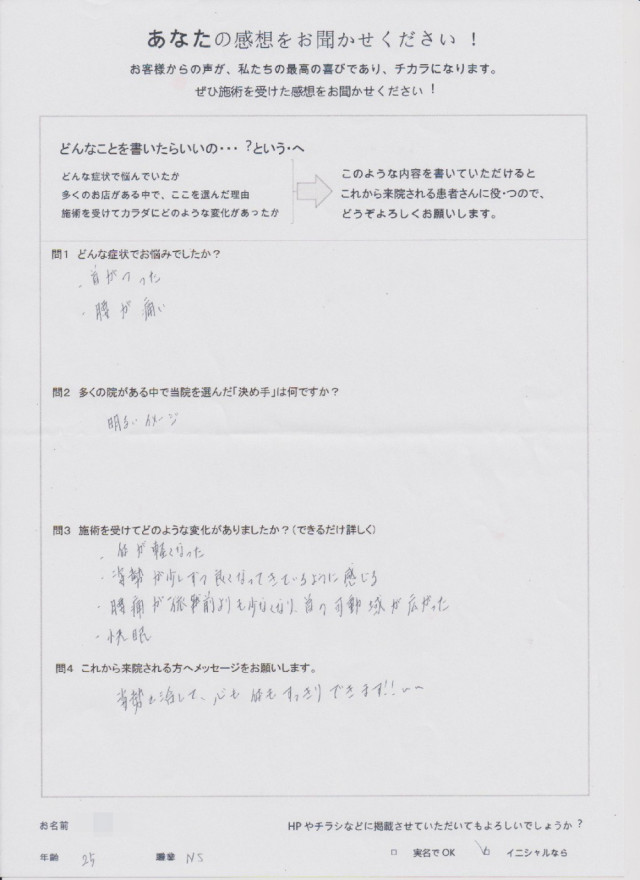 あなたの感想をお聞かせください！
お客様からの声が、私たちの最高の喜びであり、チカラになります。
ぜひ施術を受けた感想をお聞かせください！
どんなことを書いたらいいの・・・？という・へ
どんな症状で悩んでいたか
多くのお店がある中で、ここを選んだ理由
施術を受けてカラダにどのような変化があったか
このような内容を書いていただけると
これから来院される患者さんに役・つので、
どうぞよろしくお願いします。
問1 どんな症状でお悩みでしたか？
・首がつった
・腰が痛い
問2 多くの院がある中で当院を選んだ「決め手」は何ですか？
明るいイメージ
問3 施術を受けてどのような変化がありましたか？（できるだけ詳しく）
・体が軽くなった
・姿勢が少しずつ良くなってきているように感じる
・腰痛が施術前よりも少なくなり、首の可動域が広がった
・快眠
問4 これから来院される方へメッセージをお願いします。
姿勢も治して、心も体もすっきりできます!!
お名前
HPやチラシなどに掲載させていただいてもよろしいでしょうか？
年齢 25 職業 NS □ 実名でOK □ イニシャルなら